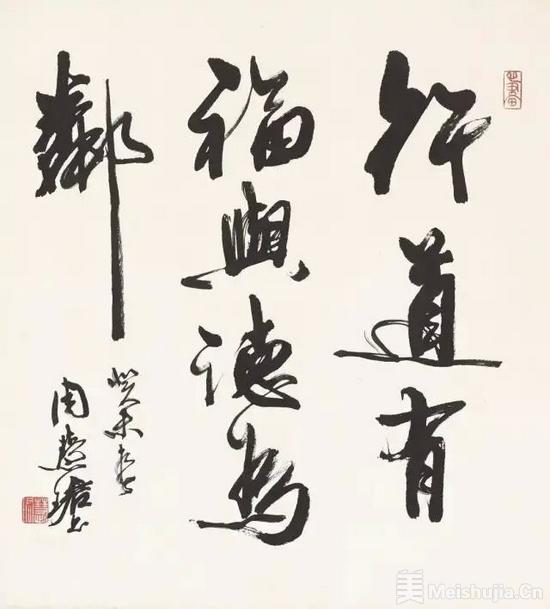 行道有
福與德為
鄰
癸未春
周慧珺書
美 Meishujia.Cn